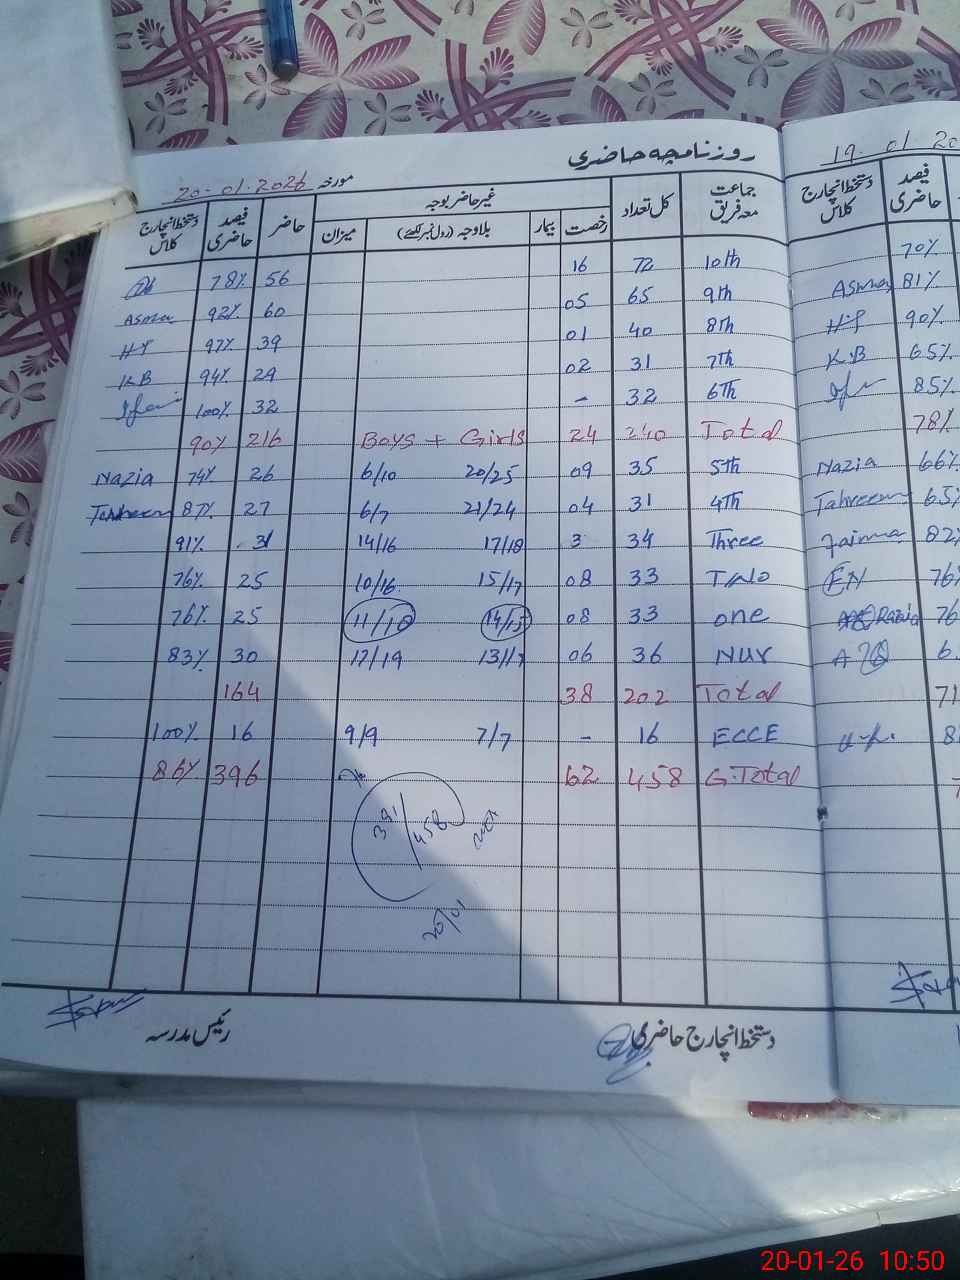 روزنامچہ حاضری
مورخہ 20-01-2026
جماعت معہ فریق | کل تعداد | غیر حاضر بوجہ | حاضر | فیصد حاضری | دستخط انچارج کلاس
رخصت | بیمار | بلاوجہ (رول نمبر لکھیے) | میزان
78% 56 16 72 10th
Asma 92% 60 05 65 9th
HY 97% 39 01 40 8th
KB 94% 29 02 31 7th
100% 32 - 32 6th
90% 216 Boys + Girls 24 240 Total
Nazia 74% 26 6/10 20/25 09 35 5th
Tahreem 87% 27 6/7 21/24 04 31 4th
91% 31 14/16 17/18 3 34 Three
76% 25 10/16 15/17 08 33 Two
76% 25 11/18 14/15 08 33 one
83% 30 17/19 13/17 06 36 NUR
164 38 202 Total
100% 16 9/9 7/7 - 16 ECCE
86% 396 62 458 G.Total
391/458
20/01
رئیس مدرسہ
دستخط انچارج حاضری
19-01-20
دستخط انچارج کلاس | فیصد حاضری
70%
Asma 81%
90%
K.B 65%
85%
78%
Nazia 66%
Tahreem 65%
Faima 82%
EN 76%
Razia 76
71
20-01-26 10:50